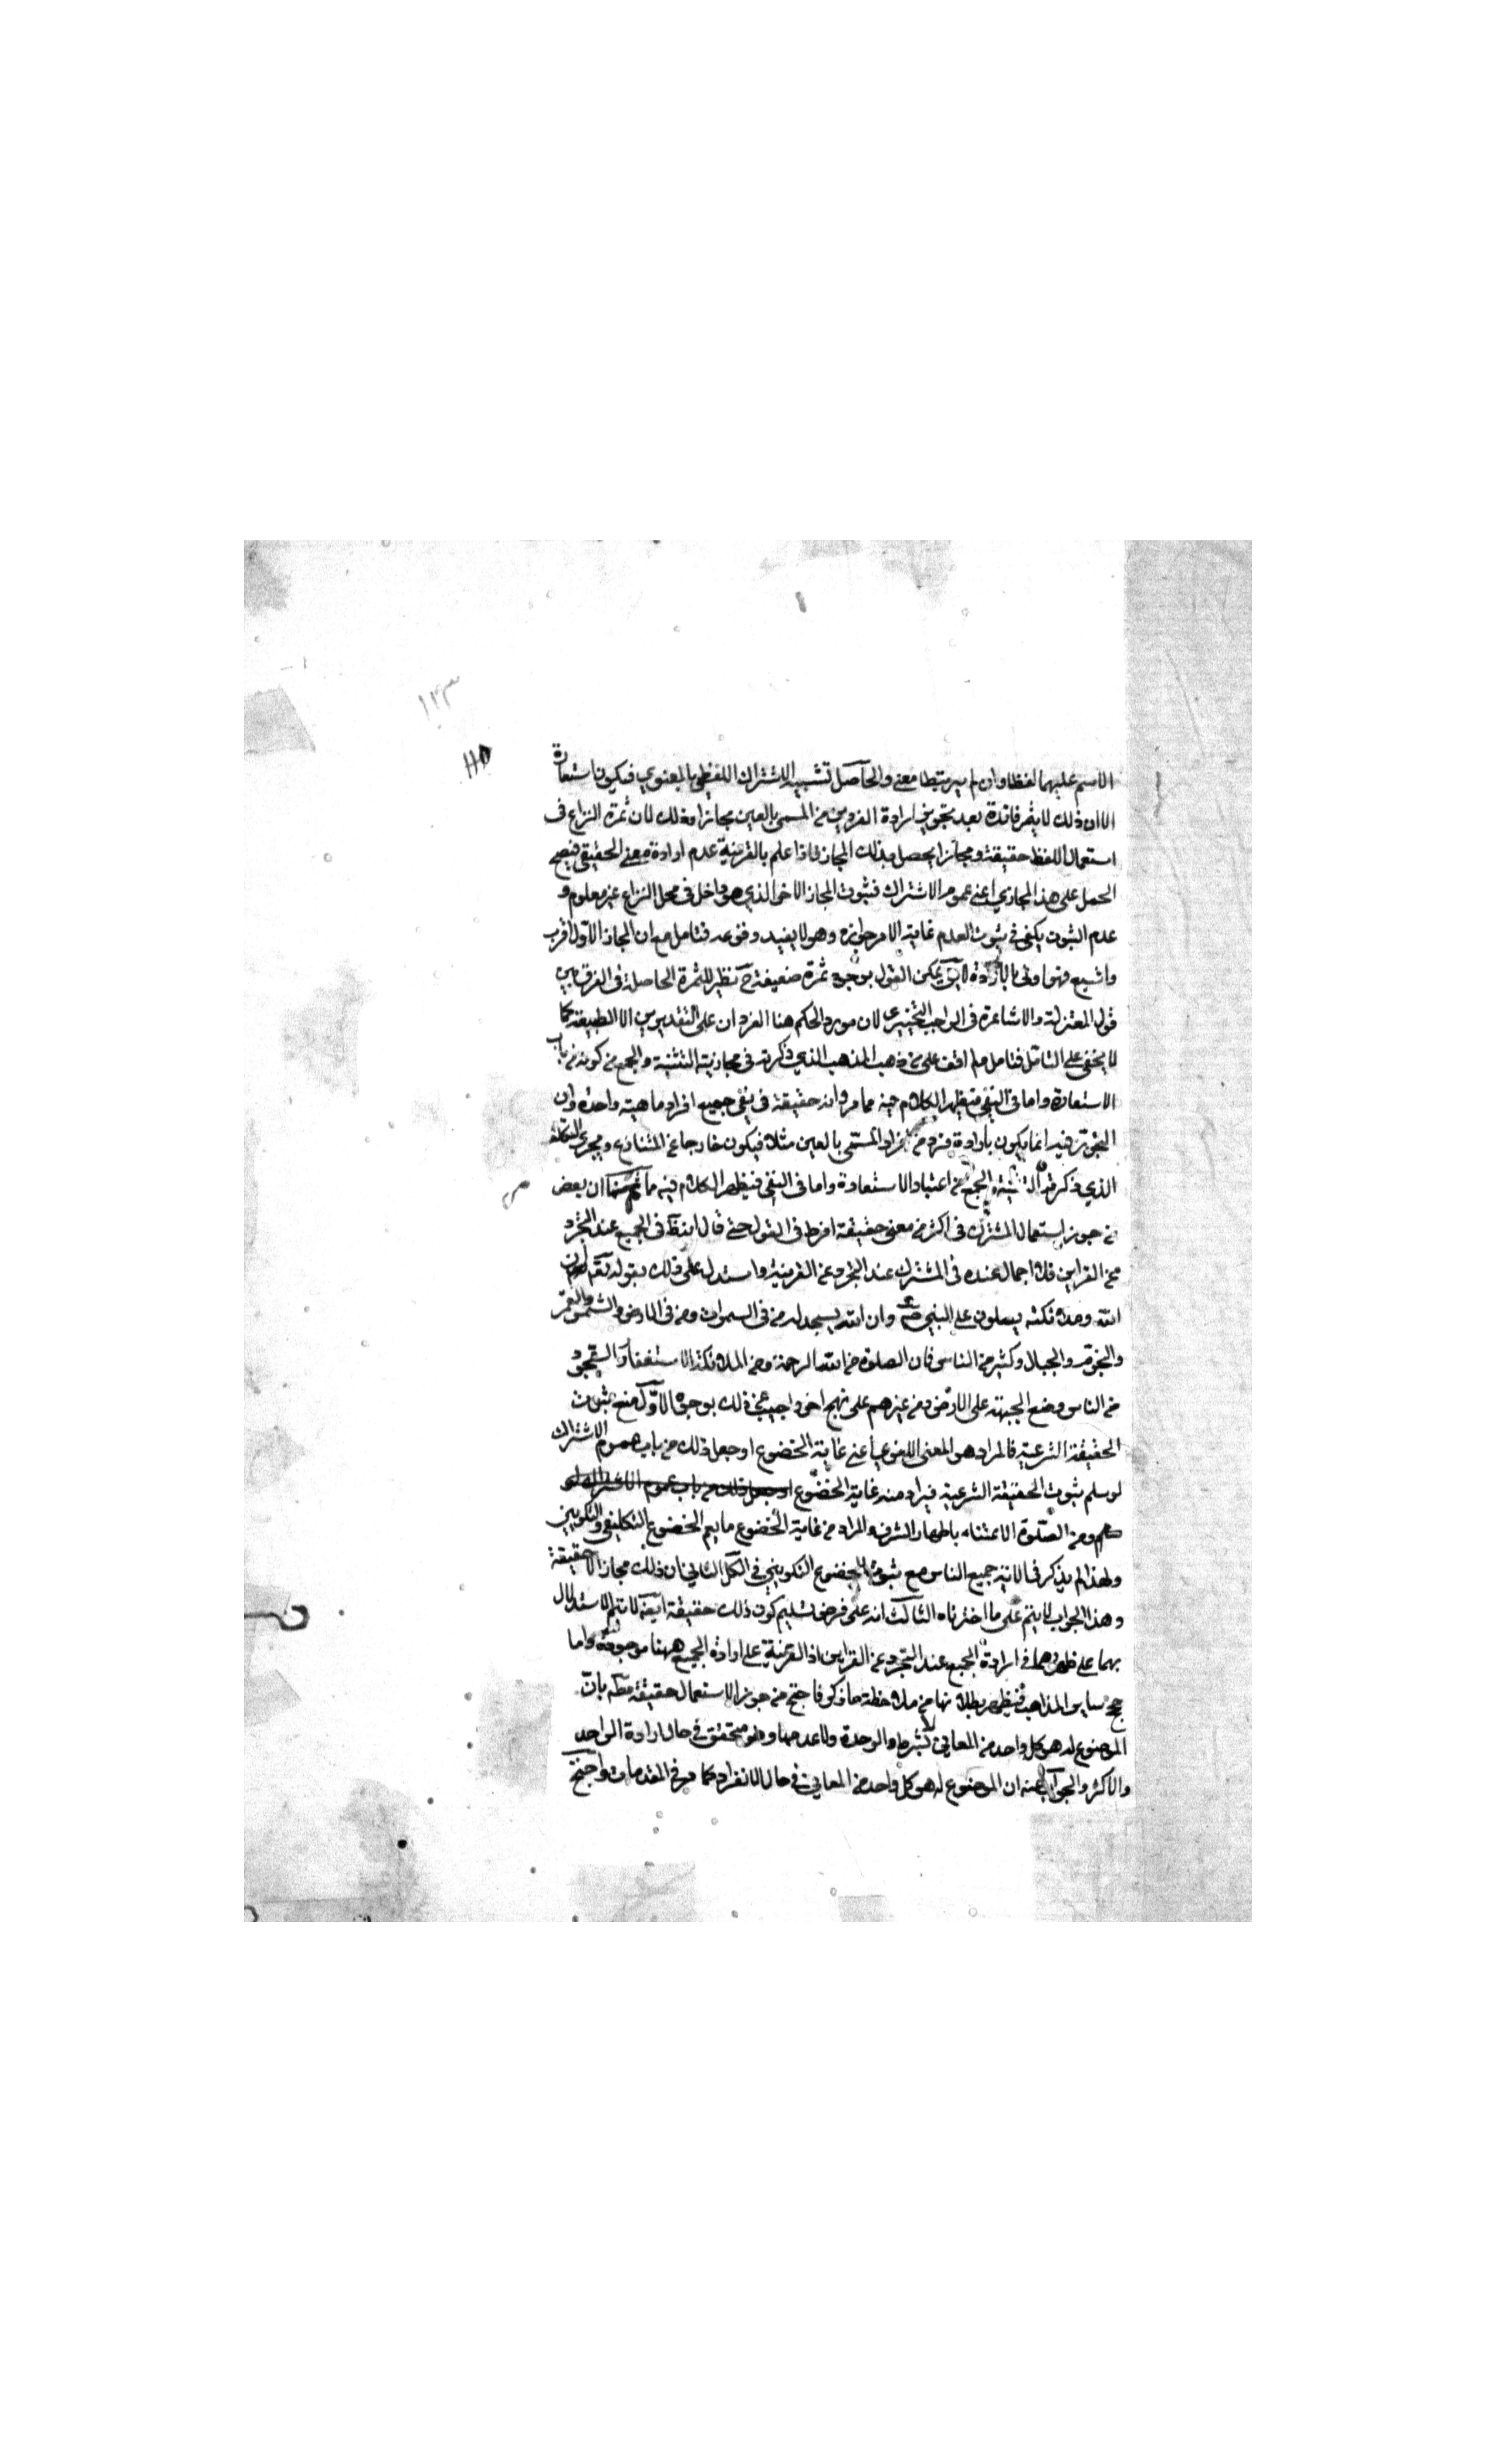 ١٢٣
١١٥
الاسم عليهما لفظا وان لم يرتبطا معنى والحاصل تشبيه الاشتراك اللفظي بالمعنوي فيكون استعارة
الا ان ذلك لا يثمر فائدة بعد تجويز ارادة الفردين من المسمى بالعين مجازا وذلك لان ثمرة النزاع في
استعمال اللفظ حقيقة ومجازا يحصل بذلك المجاز فاذا علم بالقرينة عدم ارادة معنى الحقيقي فيصح
الحمل على هذا المجازي اعني عموم الاشتراك فثبوت المجاز الاخر الذي هو داخل في محل النزاع غير معلوم و
عدم الثبوت يكفي في ثبوت العدم غاية الامر جوازه وهو لا يفيد وقوعه فتامل مع ان المجاز الاول اقرب
واشيع فهو اولى بالارادة يمكن القول بوجود ثمرة ضعيفة ح نظير للثمرة الحاصلة في الفرق بين
قول المعتزلة والاشاعرة في الواجب التخييري لان مورد الحكم هنا الفردان على التقديرين الا الطبيعة كما
لا يخفى على المتامل فتامل ولم اقف على من ذهب المذهب الذي ذكرته في مجازية التثنية والجمع من كونه من باب
الاستعارة واما في النفي فيظهر الكلام فيه مما مر وانه حقيقة في نفي جميع افراد ماهية واحدة وان
التجوز فيه انما يكون بارادة فرد من افراد المسمى بالعين مثلا فيكون خارجا عن المتنازع ويجري التكلف
الذي ذكرته في التثنية والجمع من اعتبار الاستعارة واما في النفي فيظهر الكلام فيه مما ثم ان بعض
من جوز استعمال المشترك في اكثر من معنى حقيقة افرط في القول حتى قال انه ظ في الجميع عند التجرد
عن القراين فلا اجمال عنده في المشترك عند التجرد عن القرينة واستدل على ذلك بقوله تعالى ان
الله وملائكته يصلون على النبي ص وان الله يسجد له من في السموات ومن في الارض والشمس والقمر
والنجوم والجبال وكثير من الناس فان الصلوة من الله الرحمة ومن الملائكة الاستغفار والسجود
من الناس وضع الجبهة على الارض ومن غيرهم على نهج اخر واجيب عن ذلك بوجوه الاول منع ثبوت
الحقيقة الشرعية فالمراد هو المعنى اللغوي اعني غاية الخضوع او جعل ذلك من باب عموم الاشتراك
لو سلم ثبوت الحقيقة الشرعية فيراد منه غاية الخضوع او جعل ذلك من باب عموم الاشتراك لو
سلم ومن الصلوة الاعتناء باظهار الشرف والمراد من غاية الخضوع ما يعم الخضوع التكليفي والتكويني
ولهذا لم يذكر في الاية جميع الناس مع ثبوت الخضوع التكويني في الكل الثاني ان ذلك مجاز لا حقيقة
وهذا الجواب لا يتم على ما اخترناه الثالث انه على فرض تسليم كون ذلك حقيقة ايضا لا يتم الاستدلال
بهما على ظهورهما في ارادة الجميع عند التجرد عن القراين اذ القرينة على ارادة الجميع ههنا موجودة واما
حجج ساير المذاهب فيظهر بطلانها من ملاحظة ما ذكر فاحتج من جوز الاستعمال حقيقة مطلقا بان
الموضوع له هو كل واحد من المعاني لا بشرط الوحدة ولا عدمها وهو متحقق في حال ارادة الواحد
والاكثر والجواب عنه ان الموضوع له هو كل واحد من المعاني في حال الانفراد كما مر في المقدمات واحتج